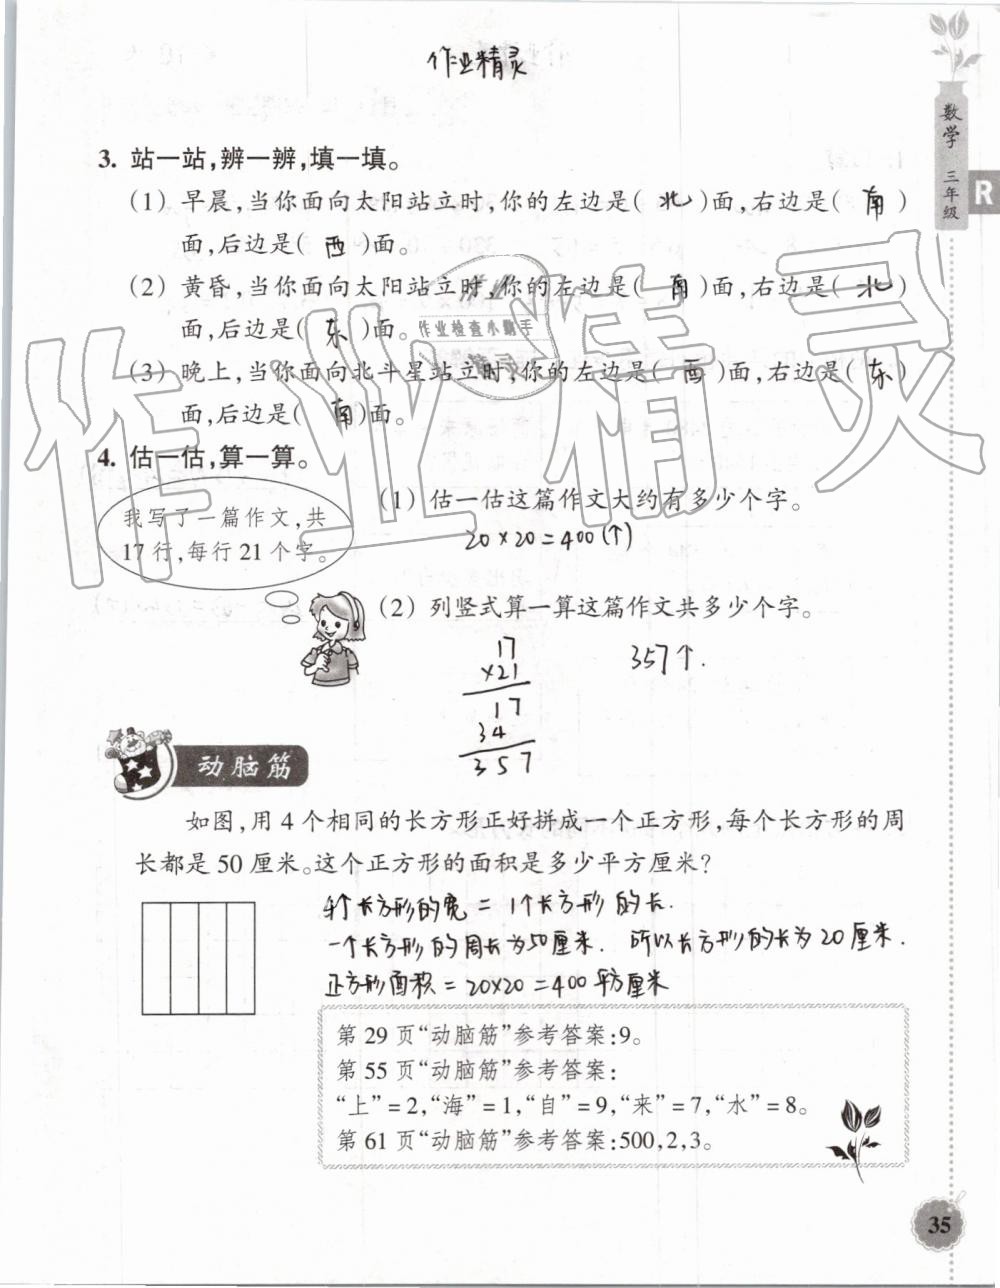 作业精灵
数学 三年级
R
3. 站一站,辨一辨,填一填。
(1) 早晨,当你面向太阳站立时,你的左边是( 北 )面,右边是( 南 )
面,后边是( 西 )面。
(2) 黄昏,当你面向太阳站立时,你的左边是( 南 )面,右边是( 北 )
面,后边是( 东 )面。
(3) 晚上,当你面向北斗星站立时,你的左边是( 西 )面,右边是( 东 )
面,后边是( 南 )面。
作业检查小帮手
作业精灵
4. 估一估,算一算。
我写了一篇作文,共
17行,每行21个字。
(1) 估一估这篇作文大约有多少个字。
20×20=400(个)
(2) 列竖式算一算这篇作文共多少个字。
17
×21
17
34
357
357个.
动脑筋
如图,用4个相同的长方形正好拼成一个正方形,每个长方形的周
长都是50厘米。这个正方形的面积是多少平方厘米?
4个长方形的宽=1个长方形的长.
一个长方形的周长为50厘米. 所以长方形的长为20厘米.
正方形面积=20×20=400平方厘米
第29页“动脑筋”参考答案:9。
第55页“动脑筋”参考答案:
“上”=2,“海”=1,“自”=9,“来”=7,“水”=8。
第61页“动脑筋”参考答案:500,2,3。
35